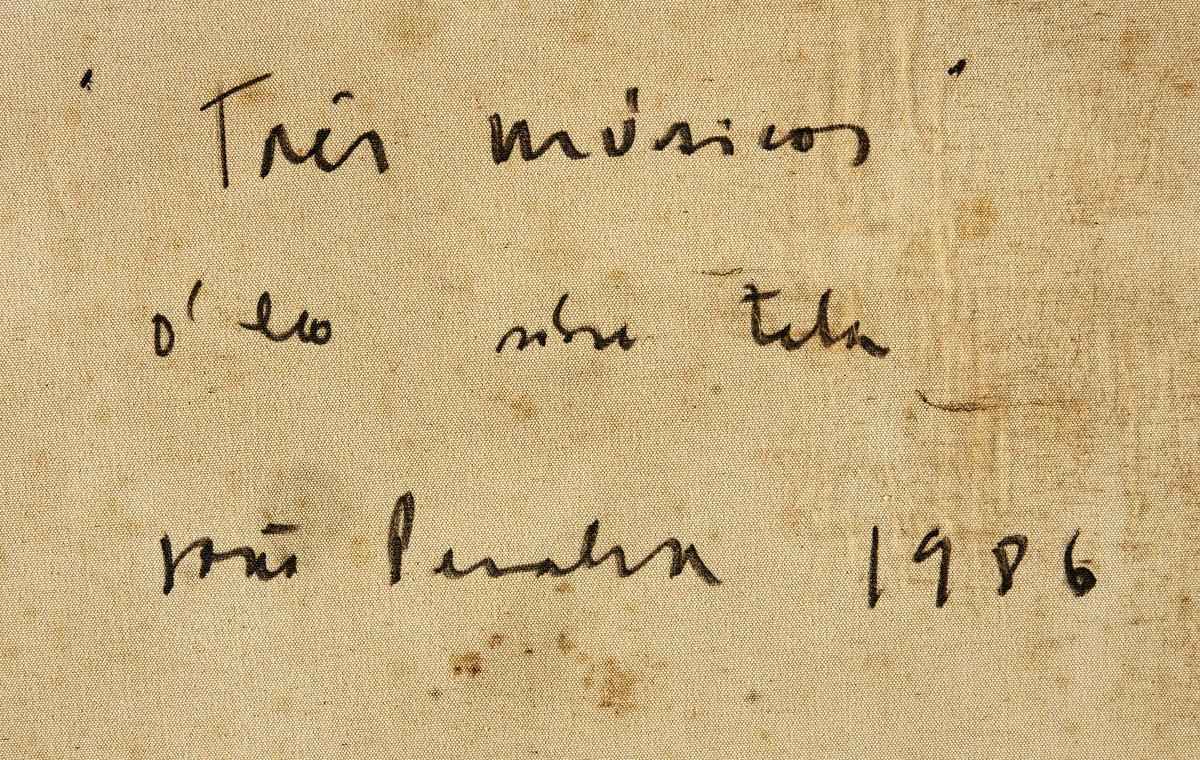 "Três músicos"
óleo sobre tela
João Peralta 1986